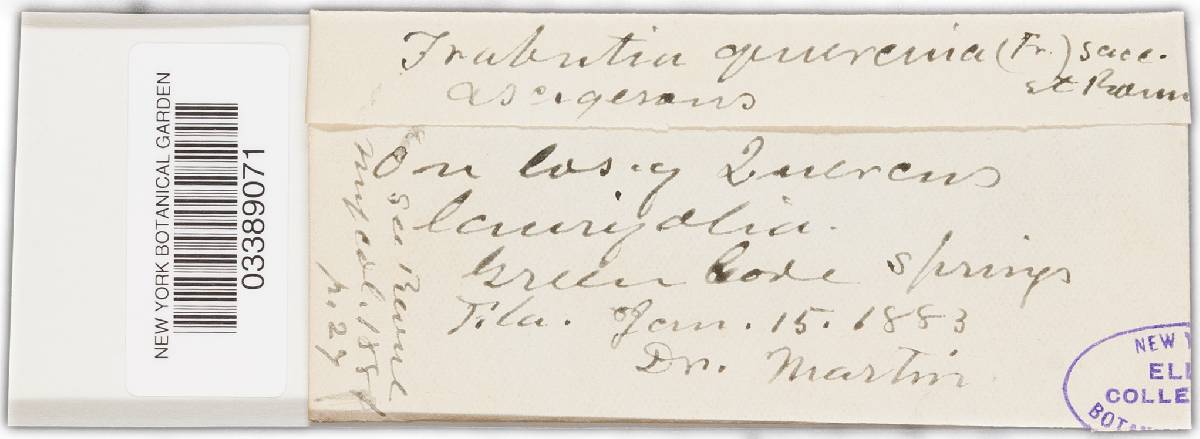 NEW YORK BOTANICAL GARDEN
03389071
Trabutia quercina (Fr.) Sacc.
et Roum
ascigerous
On lvs. of Quercus
laurifolia.
Green Cove Springs
Fla. Jan. 15. 1883
Dr. Martin
See Revue
mycol. 188
p. 27
NEW Y
ELL
COLLE
BOTAN